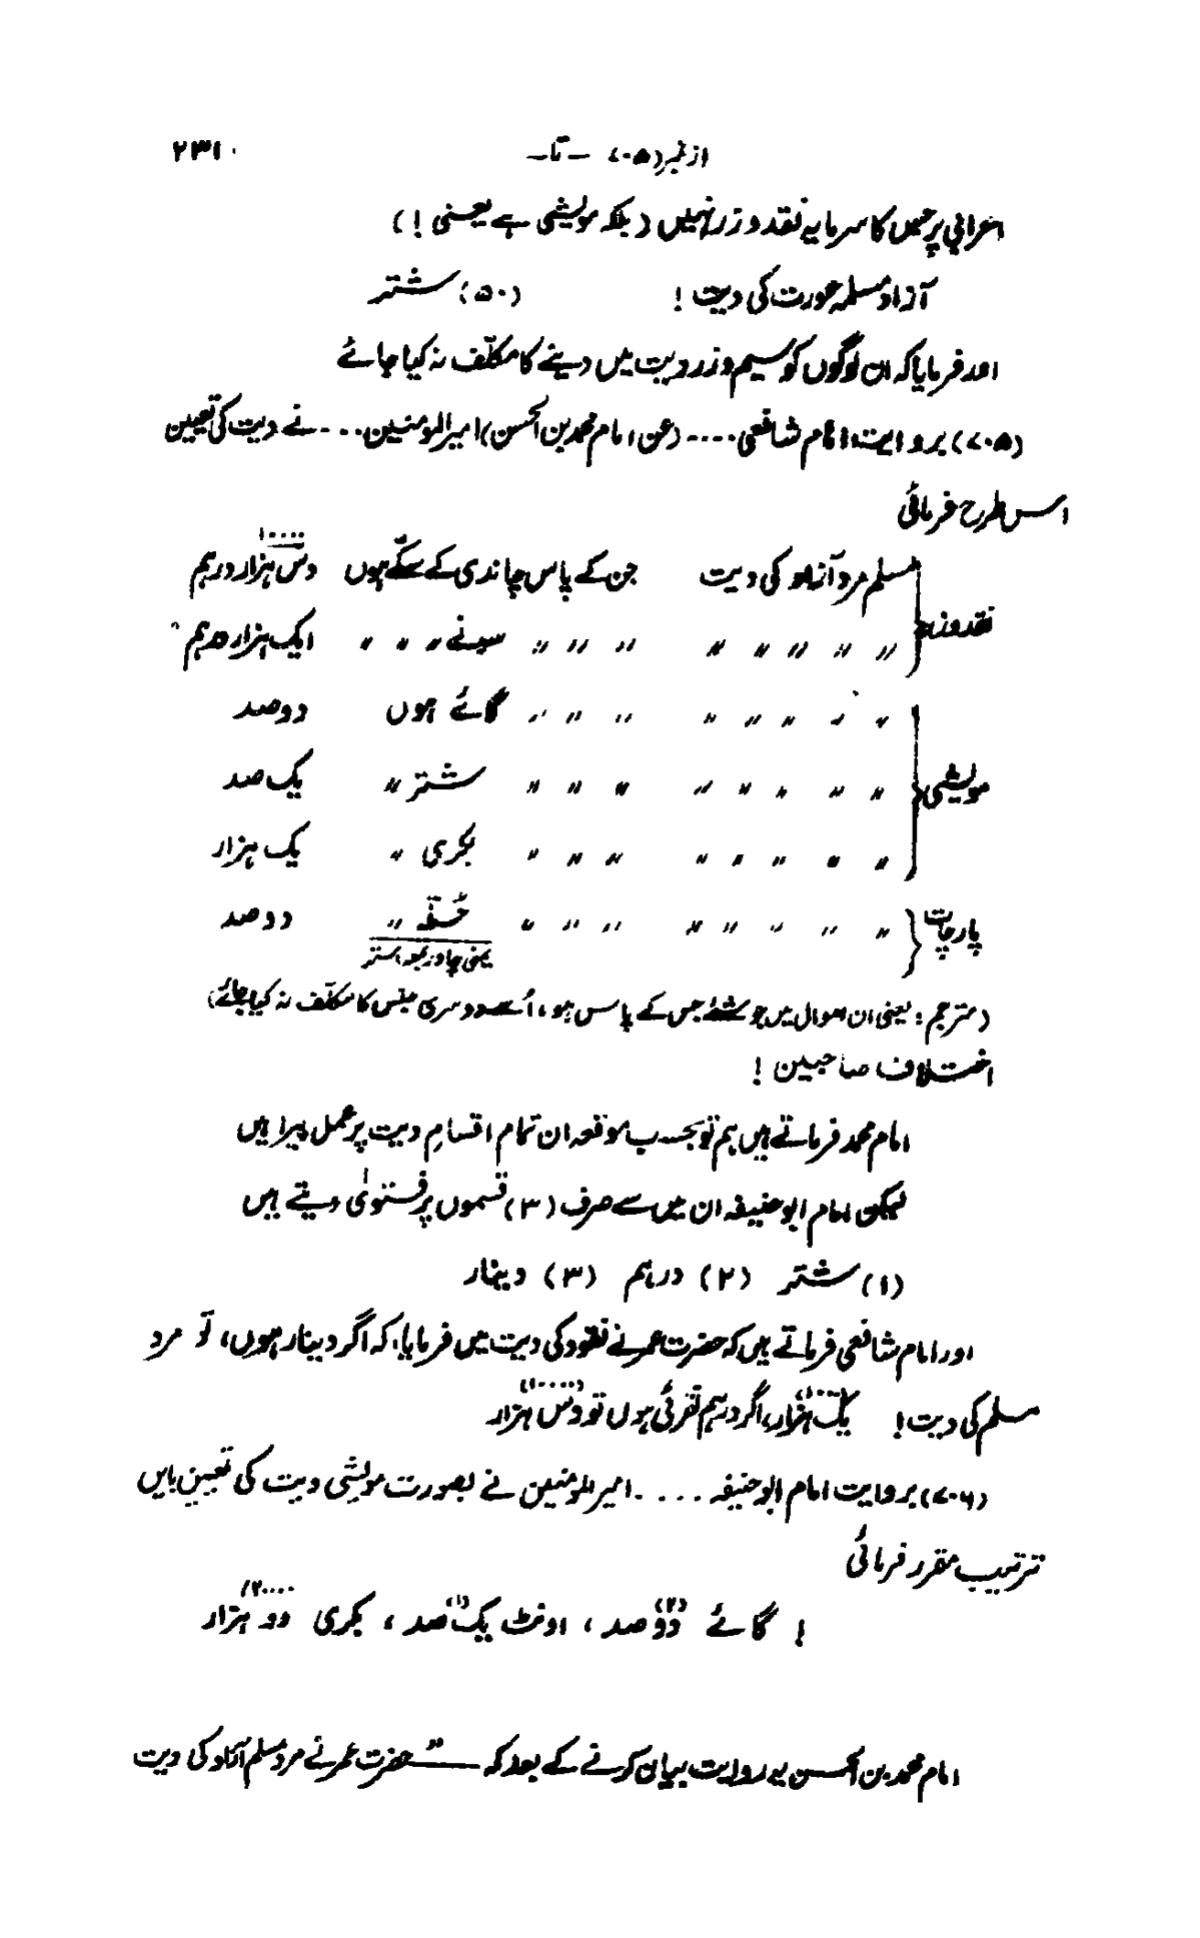 از نمبر(۷۰۵ -تا- ۲۳۱۰
اعرابی پر جس کا سرمایہ نقد و زر نہیں (بلکہ مویشی ہے یعنی !)
آزاد مسلمہ عورت کی دیت ! (۵۰) شتر
اور فرمایا کہ ان لوگوں کو سیم و زر دیت میں دینے کا مکلّف نہ کیا جائے
(۷۰۵) بروایت امام شافعی.... (عن امام محمد بن الحسن) امیر المومنین.... نے دیت کی تعیین
اس طرح فرمائی
نقد و زر { مسلم مرد آزاد کی دیت جن کے پاس چاندی کے سکّے ہوں دس ہزار درہم ۱۰۰۰۰
〃 〃 〃 〃 〃 〃 〃 〃 سونے 〃 〃 〃 ایک ہزار درہم
مویشی { 〃 〃 〃 〃 〃 〃 〃 〃 گائے ہوں دو صد
〃 〃 〃 〃 〃 〃 〃 〃 شتر 〃 یک صد
〃 〃 〃 〃 〃 〃 〃 〃 بکری 〃 یک ہزار
پارچات { 〃 〃 〃 〃 〃 〃 〃 〃 حُلّہ 〃 دو صد
یعنی چادر بمعہ استر
(مترجم : یعنی ان اموال میں جو شئے جس کے پاس ہو، اُسے دوسری جنس کا مکلّف نہ کیا جائے)
اختلاف صاحبین !
امام محمد فرماتے ہیں ہم تو بحسب موقعہ ان تمام اقسامِ دیت پر عمل پیرا ہیں
لیکن امام ابو حنیفہ ان میں سے صرف (۳) قسموں پر فتویٰ دیتے ہیں
(۱) شتر (۲) درہم (۳) دینار
اور امام شافعی فرماتے ہیں کہ حضرت عمر نے نقود کی دیت میں فرمایا، کہ اگر دینار ہوں، تو مرد
مسلم کی دیت ! یک ہزار (۱۰۰۰)، اگر درہم نقرئی ہوں تو دس ہزار (۱۰۰۰۰)
(۷۰۶) بروایت امام ابو حنیفہ .... امیر المومنین نے بصورت مویشی دیت کی تعیین بایں
ترتیب مقرر فرمائی
! گائے دو (۲) صد ، اونٹ یک (۱) صد ، بکری دو ہزار
امام محمد بن الحسن یہ روایت بیان کرنے کے بعد کہ — حضرت عمر نے مرد مسلم آزاد کی دیت